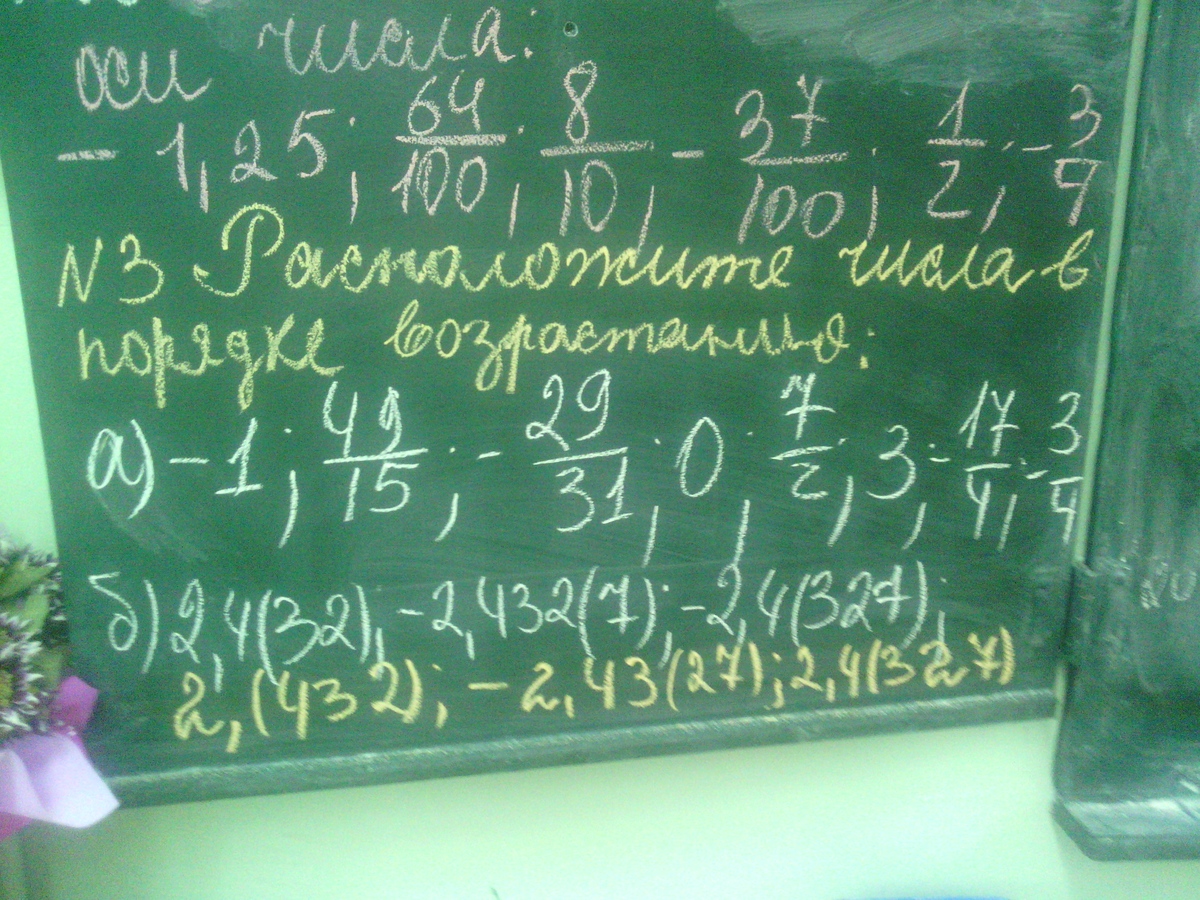 оси числа:
- 1,25; 64/100; 8/10; - 37/100; 1/2; - 3/4
N3 Расположите числа в
порядке возрастанию:
а) - 1; 49/15; - 29/31; 0; 7/2; 3; - 17/4; - 3/4
б) 2,4(32); - 2,432(7); - 2,4(327);
2,(432); - 2,43(27); 2,4(327)